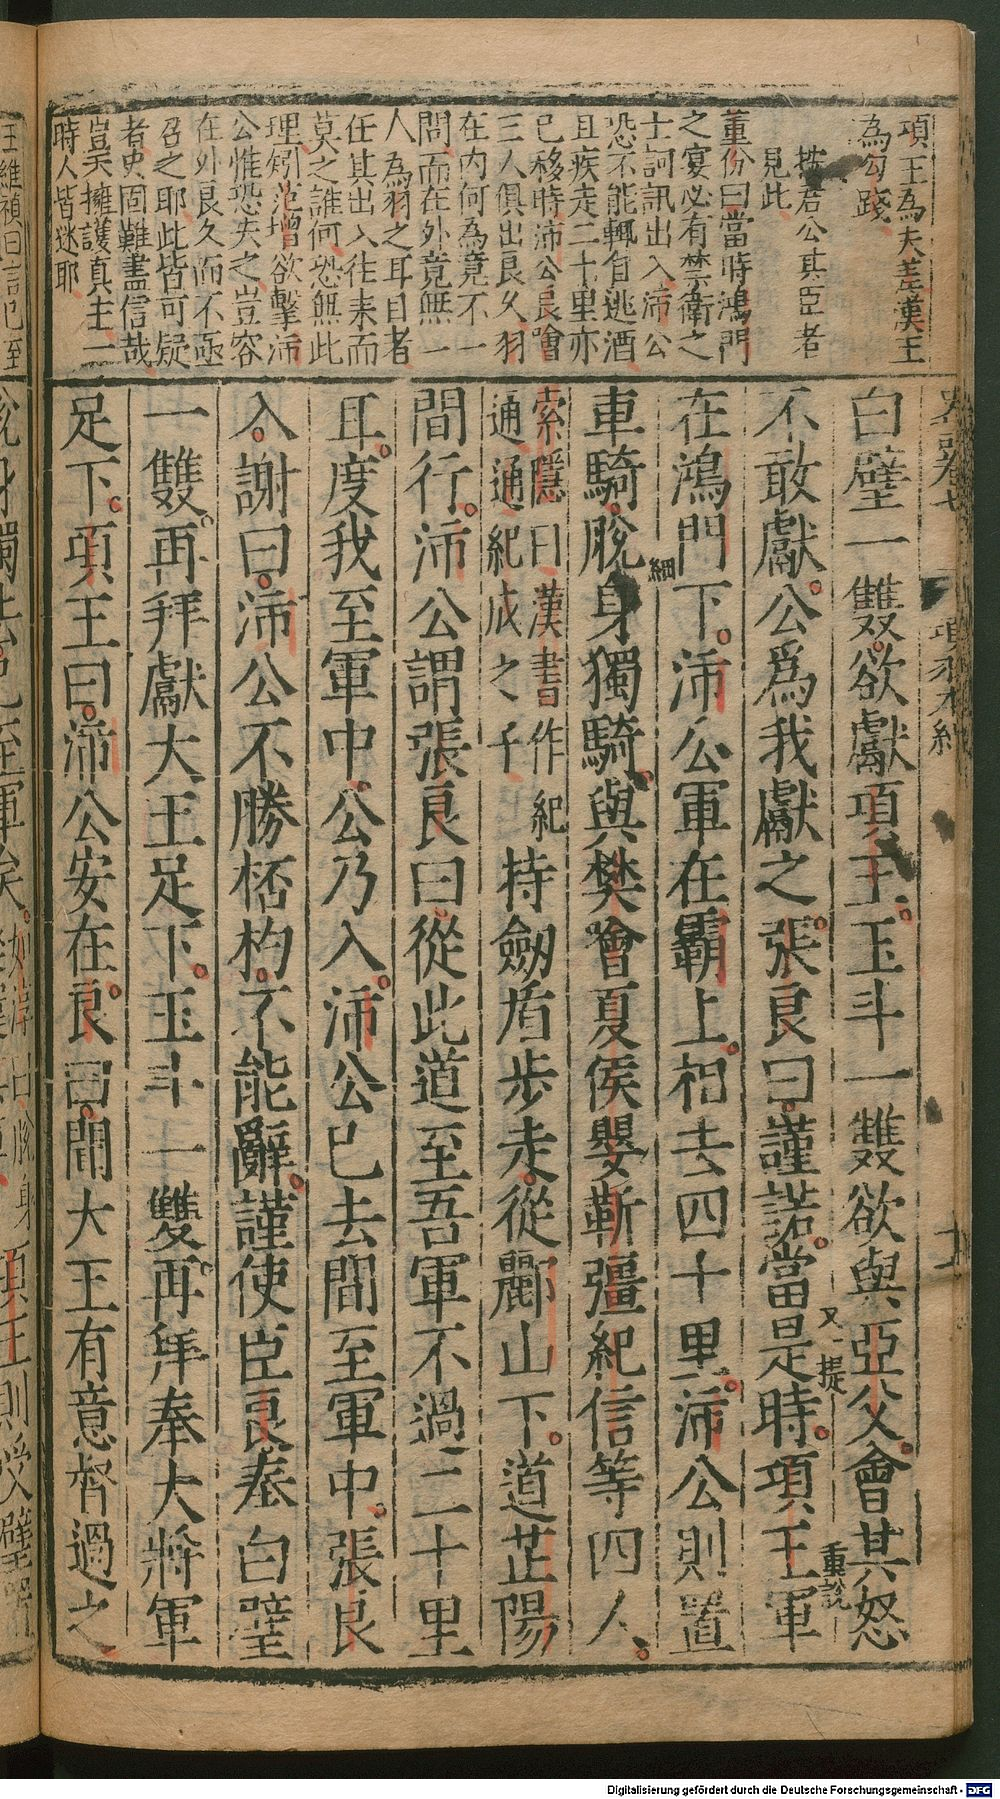 項王為夫差漢王
為勾踐
按君公其臣者
見此
董份曰當時鴻門
之宴必有禁衛之
士訶訊出入沛公
恐不能輒自逃酒
且疾走二十里亦
已移時沛公良噲
三人俱出良久羽
在內何為竟不一
問而在外竟無一
人為羽之耳目者
任其出入往来而
莫之誰何恐無此
理矧范增欲擊沛
公惟恐失之豈容
在外良久而不亟
召之耶此皆可疑
者史固難盡信哉
豈天擁護真主一
時人皆迷耶
白璧一雙欲獻項王玉斗一雙欲與亞父會其怒
不敢獻公爲我獻之張良曰謹諾當是時項王軍
又一提
重說
在鴻門下沛公軍在霸上相去四十里沛公則置
細
車騎脫身獨騎與樊噲夏侯嬰靳彊紀信等四人
索隱曰漢書作紀
通通紀成之子
持劔盾步走從酈山下道芷陽
間行沛公謂張良曰從此道至吾軍不過二十里
耳度我至軍中公乃入沛公已去間至軍中張良
入謝曰沛公不勝桮杓不能辭謹使臣良奉白璧
一雙再拜獻大王足下玉斗一雙再拜奉大將軍
足下項王曰沛公安在良曰聞大王有意督過之
項羽本紀
Digitalisierung gefördert durch die Deutsche Forschungsgemeinschaft - DFG